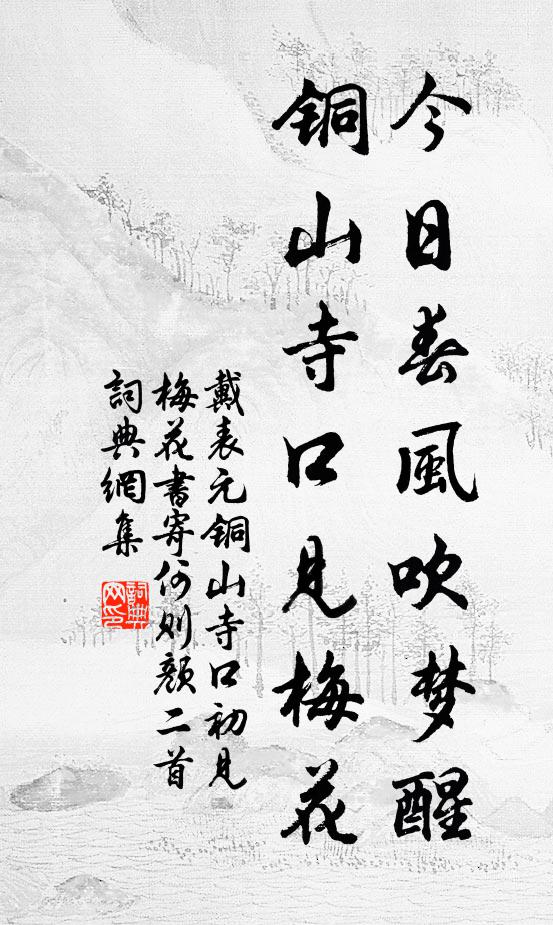 今日春風吹梦醒
铜山寺口見梅花
戴表元铜山寺口初見
梅花書寄何则颜二首
詞典網集
詞典网印